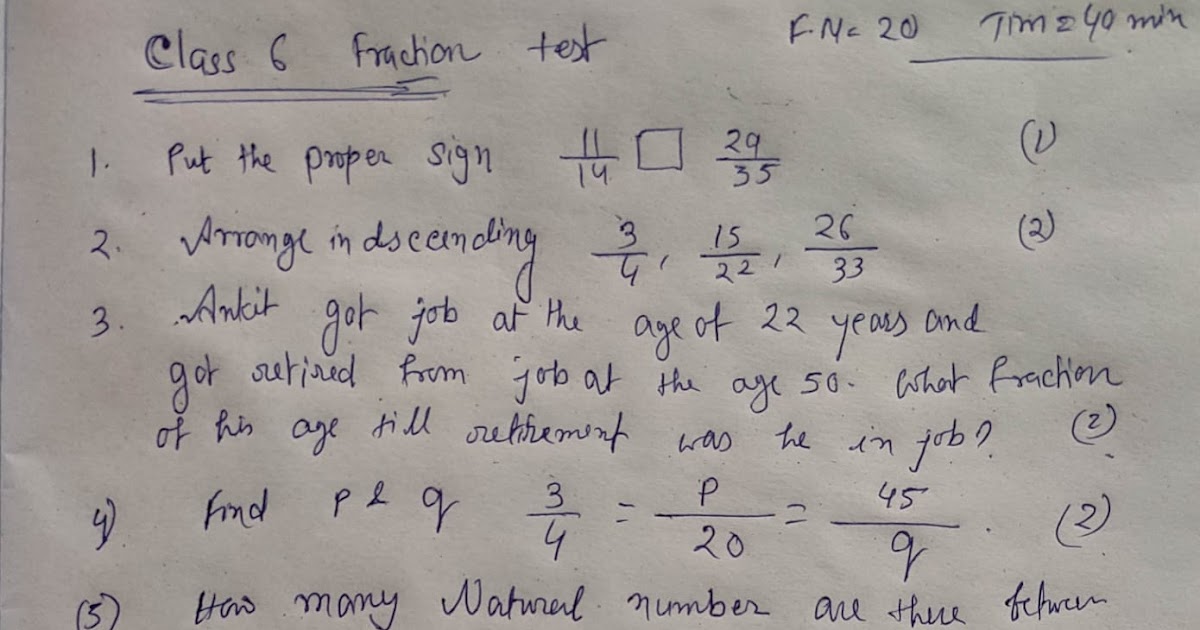 Class 6 Fraction test F.M= 20 Tim=40 min
1. Put the proper sign 11/14 □ 29/35 (1)
2. Arrange in dsceending 3/4, 15/22, 26/33 (2)
3. Ankit got job at the age of 22 years and
got retired from job at the age 50. What fraction
of his age till retirement was he in job? (2)
4) Find P & q 3/4 = P/20 = 45/q. (2)
(5) How many Natural number are there between